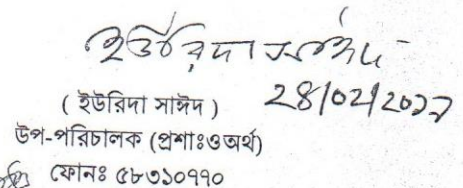 ইউরিদা সাঈদ
28/02/2017
( ইউরিদা সাঈদ )
উপ-পরিচালক (প্রশাঃওঅর্থ)
ফোনঃ ৫৮৩১০৭৭০